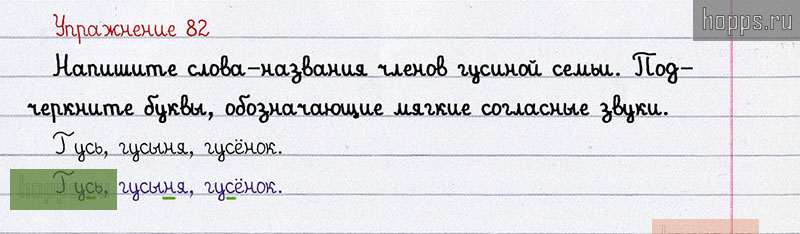 hopps.ru
Упражнение 82
Напишите слова-названия членов гусиной семьи. Под-
черкните буквы, обозначающие мягкие согласные звуки.
Гусь, гусыня, гусёнок.
Гусь, гусыня, гусёнок.